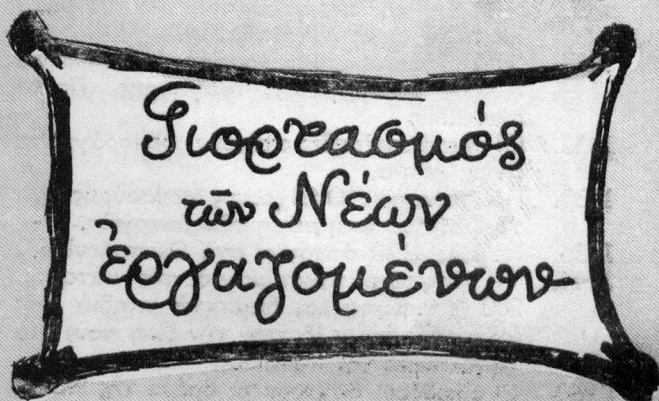 Γιορτασμός
τῶν Νέων
ἐργαζομένων